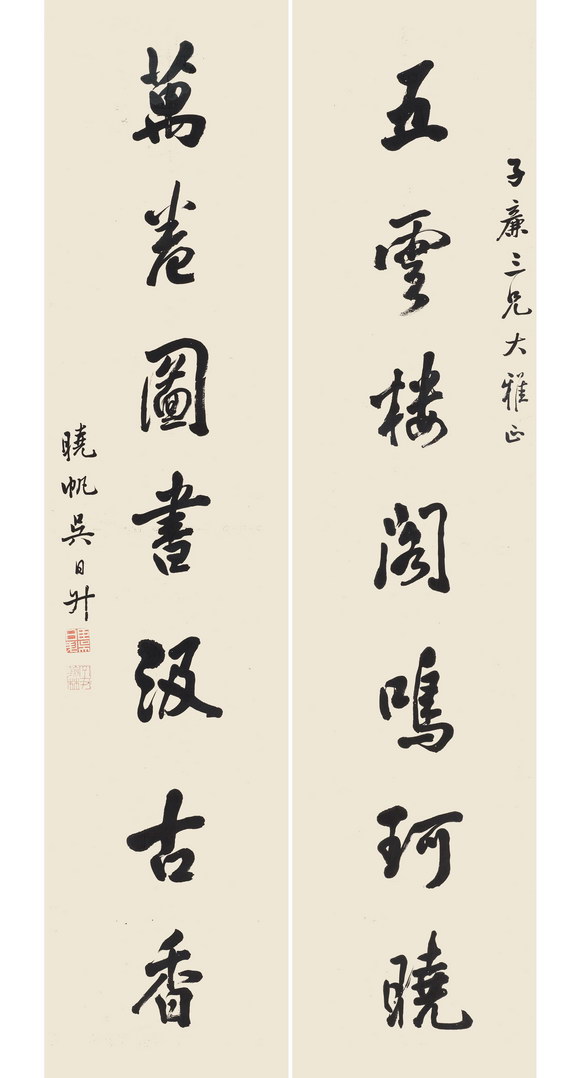 子廉三兄大雅正
五雲樓閣鳴珂曉
萬卷圖書汲古香
曉帆吳日升